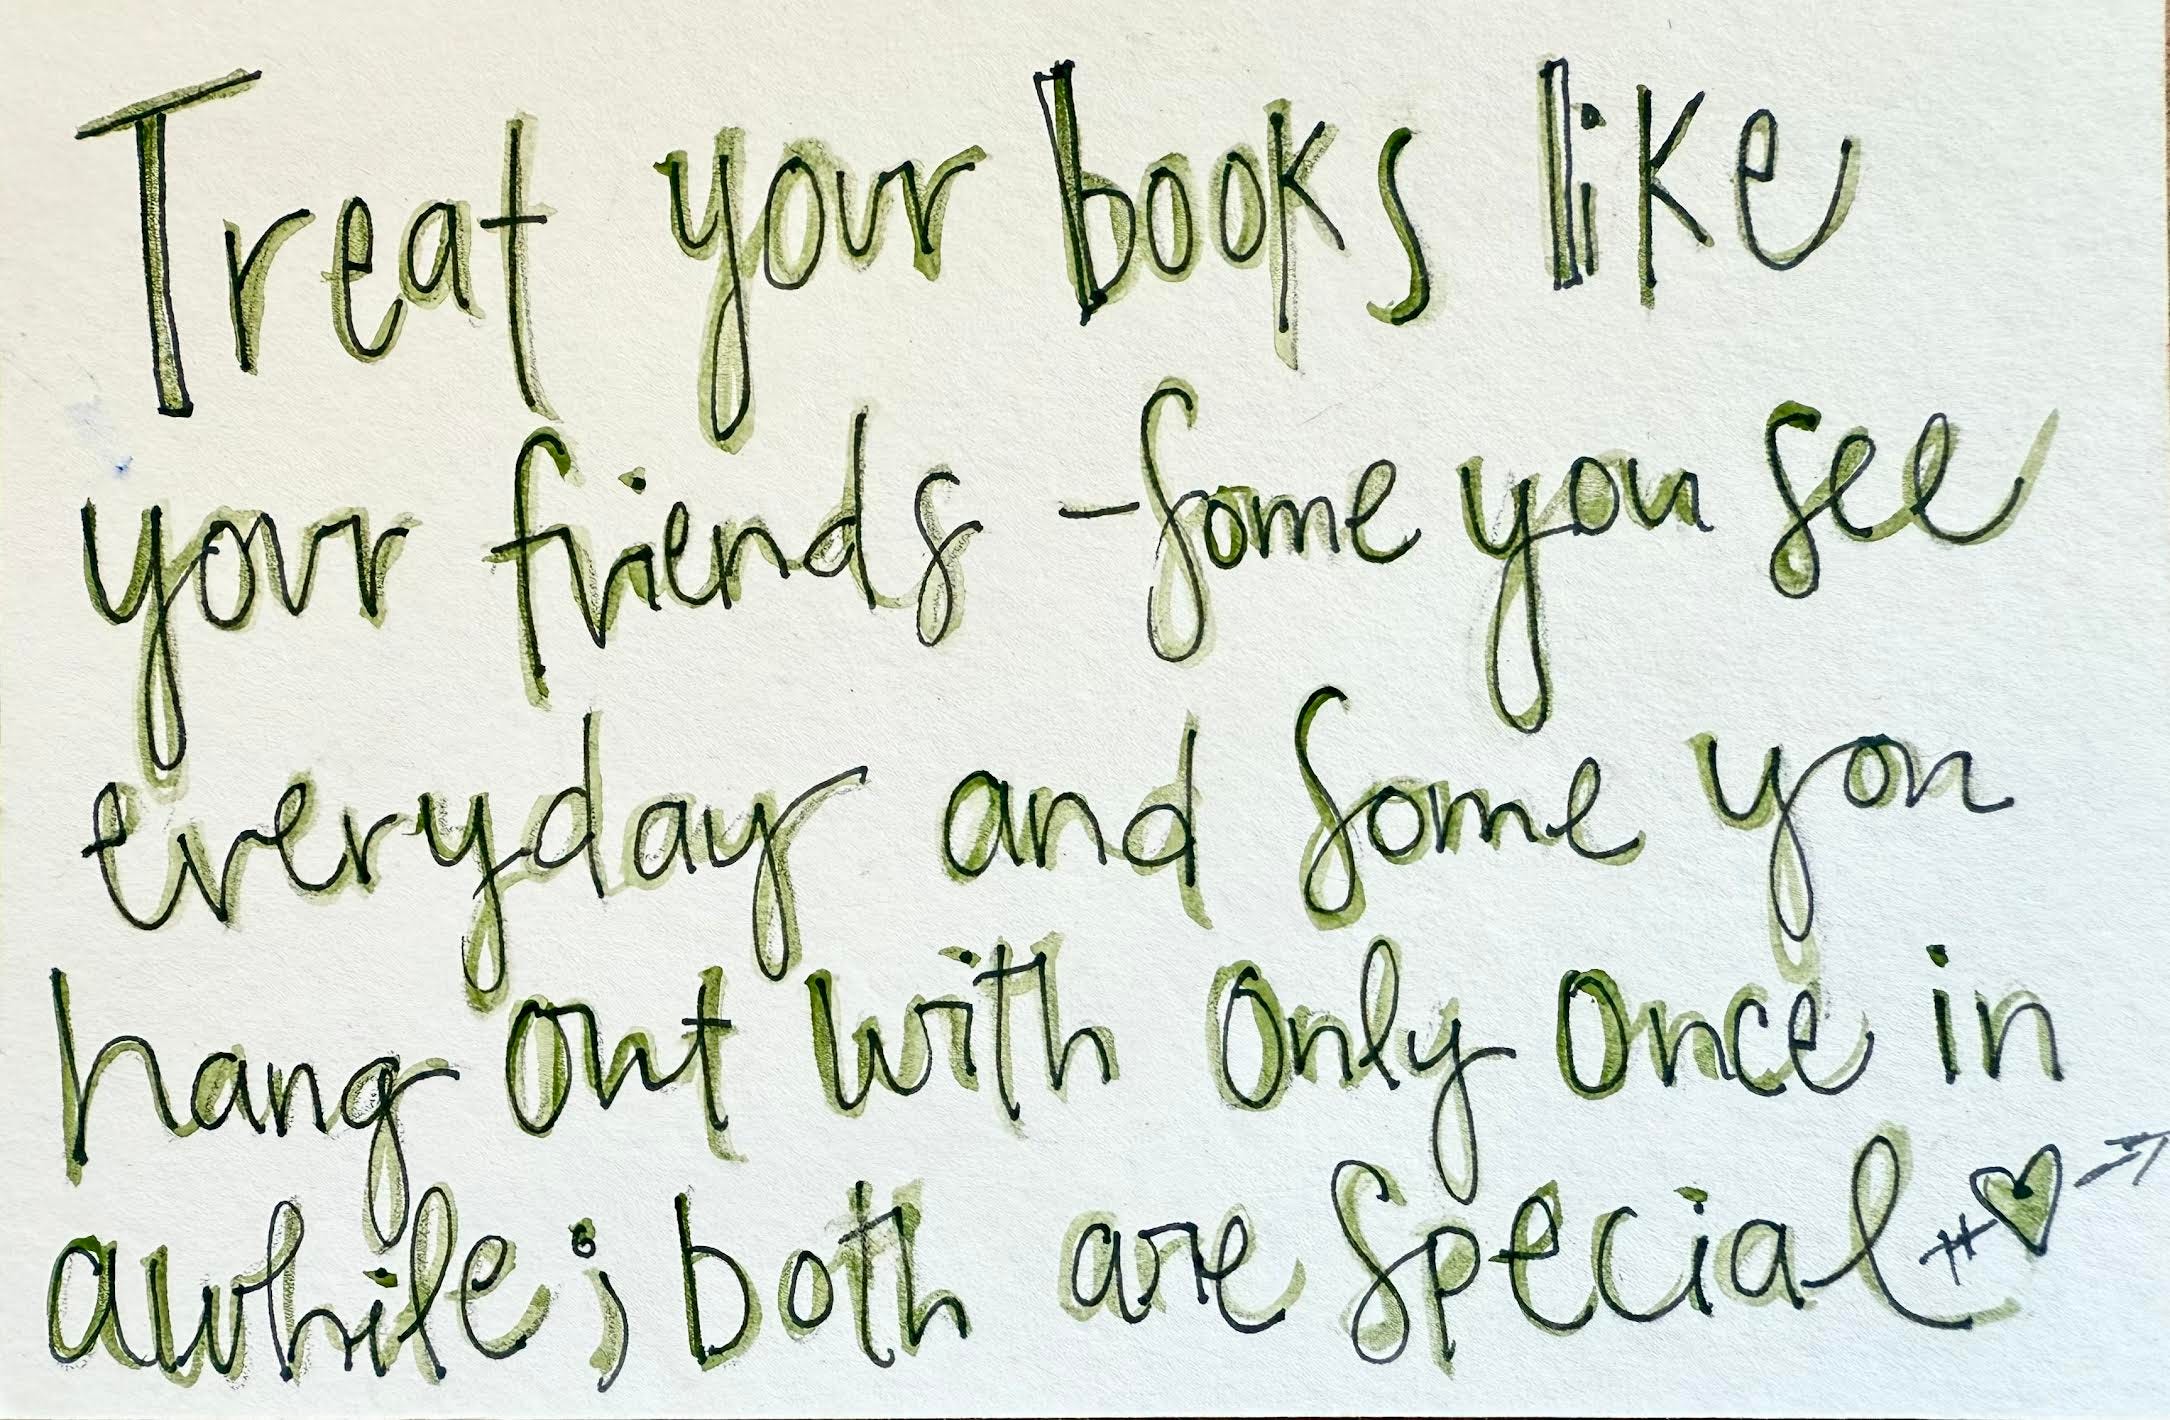 Treat your books like
your friends - Some you see
everyday and some you
hang out with only once in
awhile; both are special